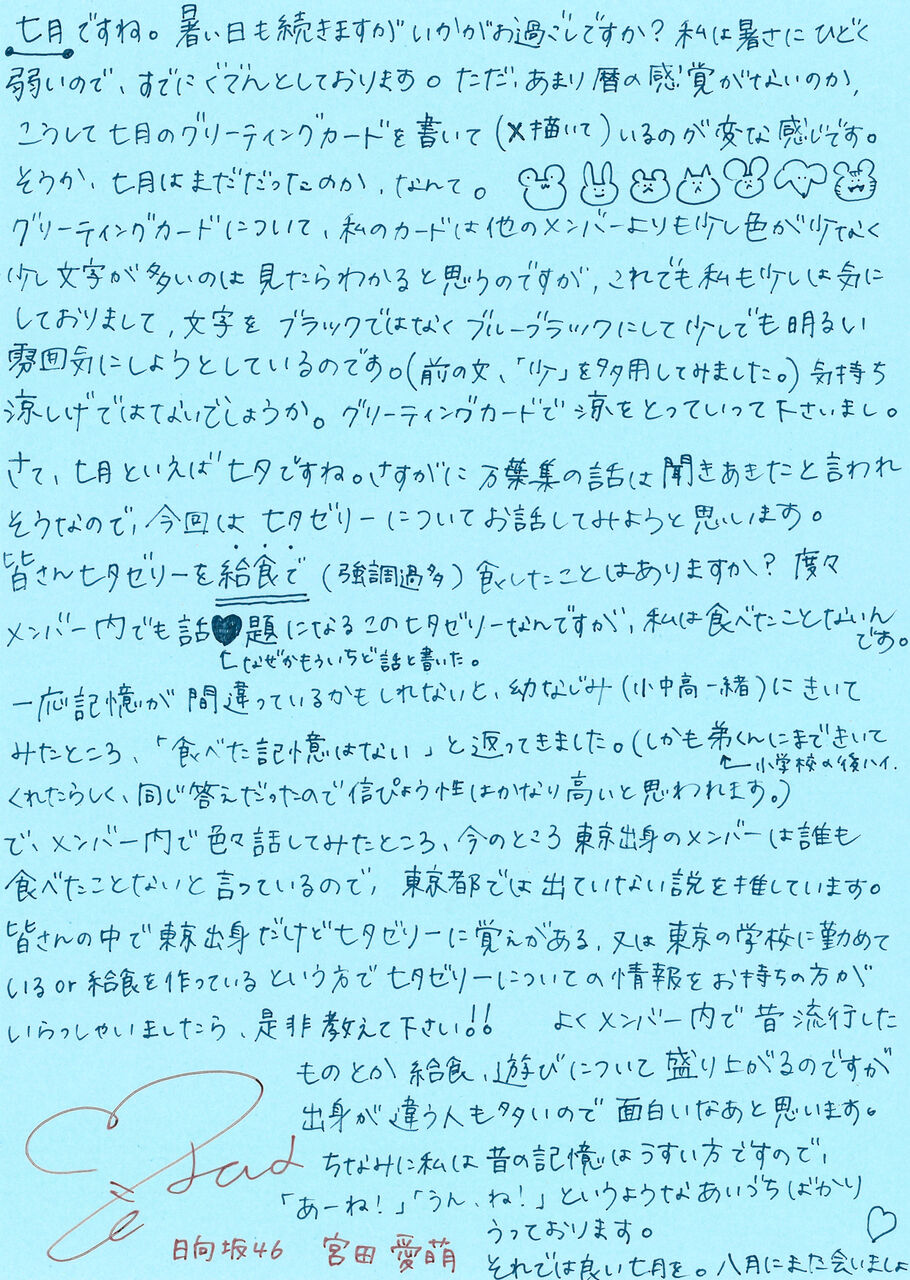 七月ですね。暑い日も続きますがいかがお過ごしですか？私は暑さにひどく
弱いので、すでにぐでんとしております。ただ、あまり暦の感覚がないのか、
こうして七月のグリーティングカードを書いて（×描いて）いるのが変な感じです。
そうか、七月はまだだったのか、なんて。
グリーティングカードについて、私のカードは他のメンバーよりも少し色が少なく
少し文字が多いのは見たらわかると思うのですが、これでも私も少しは気に
しておりまして、文字をブラックではなくブルーブラックにして少しでも明るい
雰囲気にしようとしているのです。（前の文、「少」を多用してみました。）気持ち
涼しげではないでしょうか。グリーティングカードで涼をとっていって下さいまし。
さて、七月といえば七夕ですね。さすがに万葉集の話は聞きあきたと言われ
そうなので、今回は七夕ゼリーについてお話してみようと思います。
皆さん七夕ゼリーを給食で（強調過多）食したことはありますか？度々
メンバー内でも話♥題になるこの七夕ゼリーなんですが、私は食べたことないん
です。
←なぜかもういちど話と書いた。
一応記憶が間違っているかもしれないと、幼なじみ（小中高一緒）にきいて
みたところ、「食べた記憶はない」と返ってきました。（しかも弟くんにまできいて
←小学校の後ハイ.
くれたらしく、同じ答えだったので信ぴょう性はかなり高いと思われます。）
で、メンバー内で色々話してみたところ、今のところ東京出身のメンバーは誰も
食べたことないと言っているので、東京都では出ていない説を推しています。
皆さんの中で東京出身だけど七夕ゼリーに覚えがある、又は東京の学校に勤めて
いるor給食を作っているという方で七夕ゼリーについての情報をお持ちの方が
いらっしゃいましたら、是非教えて下さい!! よくメンバー内で昔流行した
ものとか給食、遊びについて盛り上がるのですが
出身が違う人も多いので面白いなあと思います。
ちなみに私は昔の記憶はうすい方ですので、
「あーね！」「うん、ね！」というようなあいづちばかり
うっております。
それでは良い七月を。八月にまた会いましょ♡
日向坂46 宮田愛萌